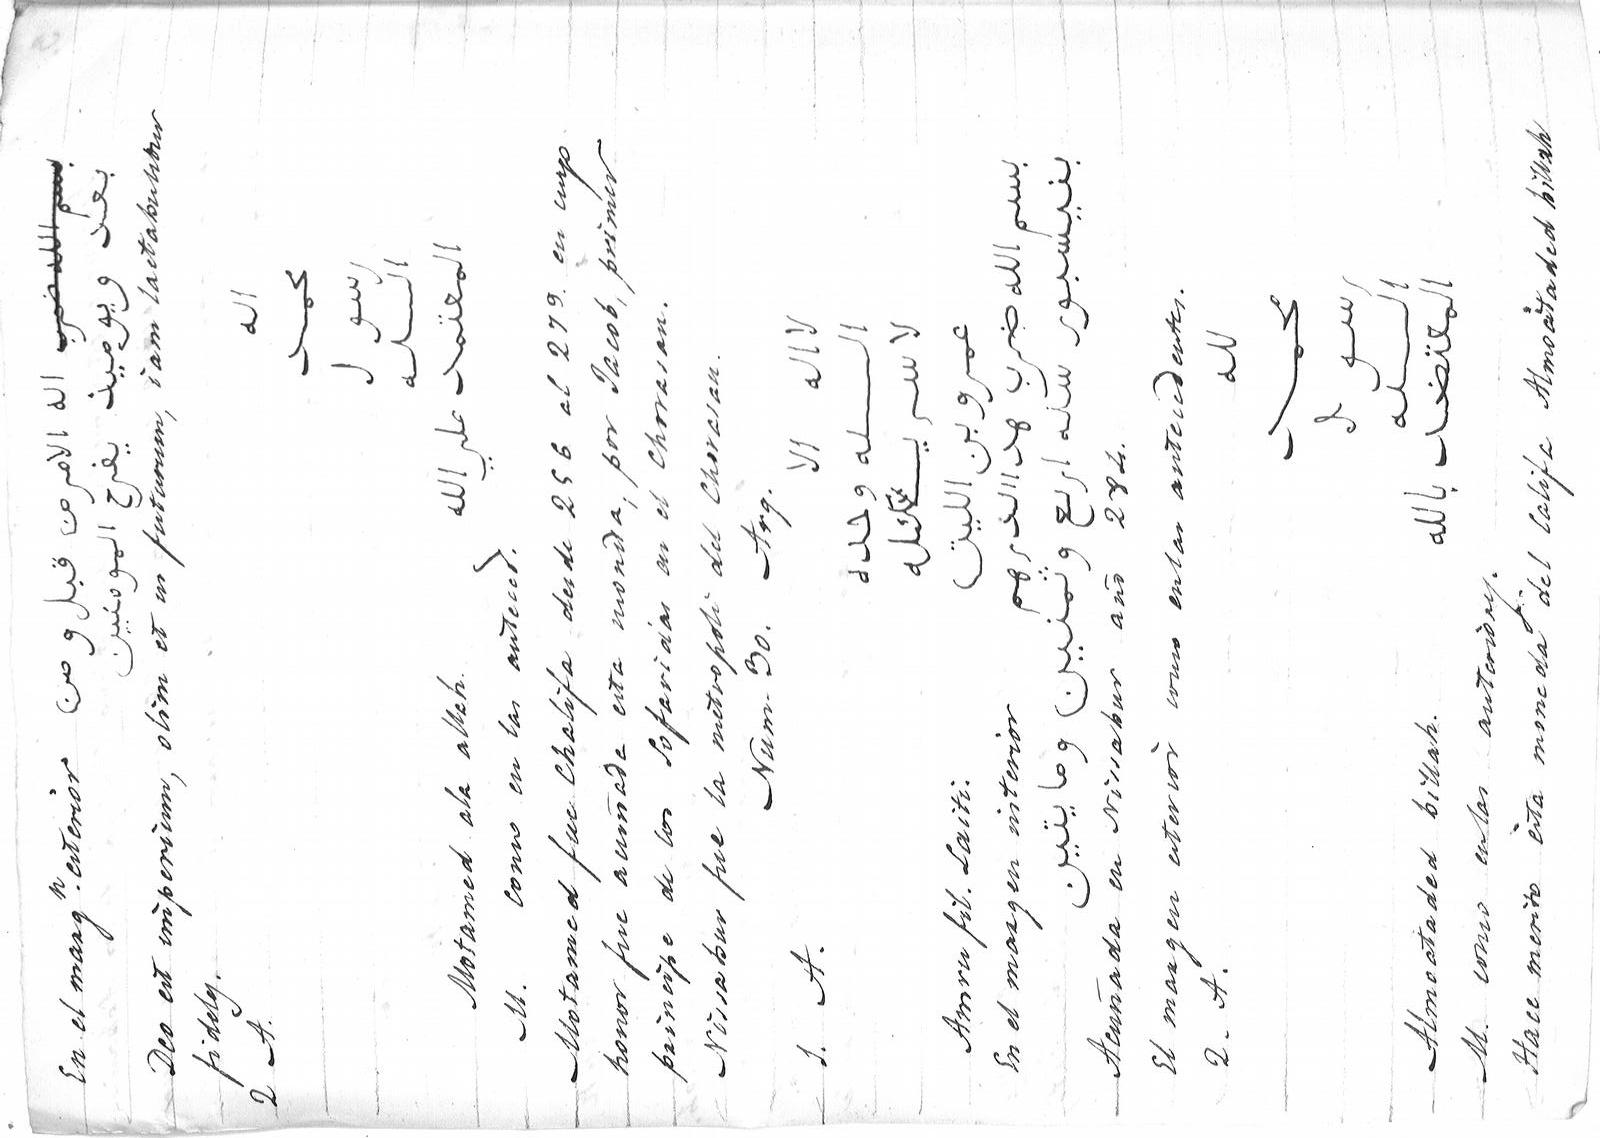 En el marg.ⁿ exterior بسم الله ضرب الله الامر من قبل و من
بعد ويوميذ يفرح المومنين
Deo est imperium, olim et in futurum, iam laetabuntur
fideles.
2 A.
لله
محمد
رسول
الله
المعتمد علي الله
Motamed ala allah.
M. como en las anteced.
Motamed fue Chalifa desde 256 al 279. en cuyo
honor fue acuñada esta moneda, por Jacob, primer
principe de los Sofaridas en el Chorasan.
Nissabur fue la metropoli del Chorasan.
Num. 30. Arg.
1. A.
لا اله الا
الله وحده
لا سريك له
عمرو بن الليث
Amru fil. Laiti.
En el margen interior بسم الله ضرب هذا الدرهم
بنيسبور سنه اربع وثمنين ومايتين
Acuñada en Nissabur año 284.
El margen exterior como en las antecedentes.
2. A.
لله
محمد
رسول
الله
المعتضد بالله
Almoataded billah.
M. como en las anteriores.
Hace merito esta moneda del Califa Almoataded billah